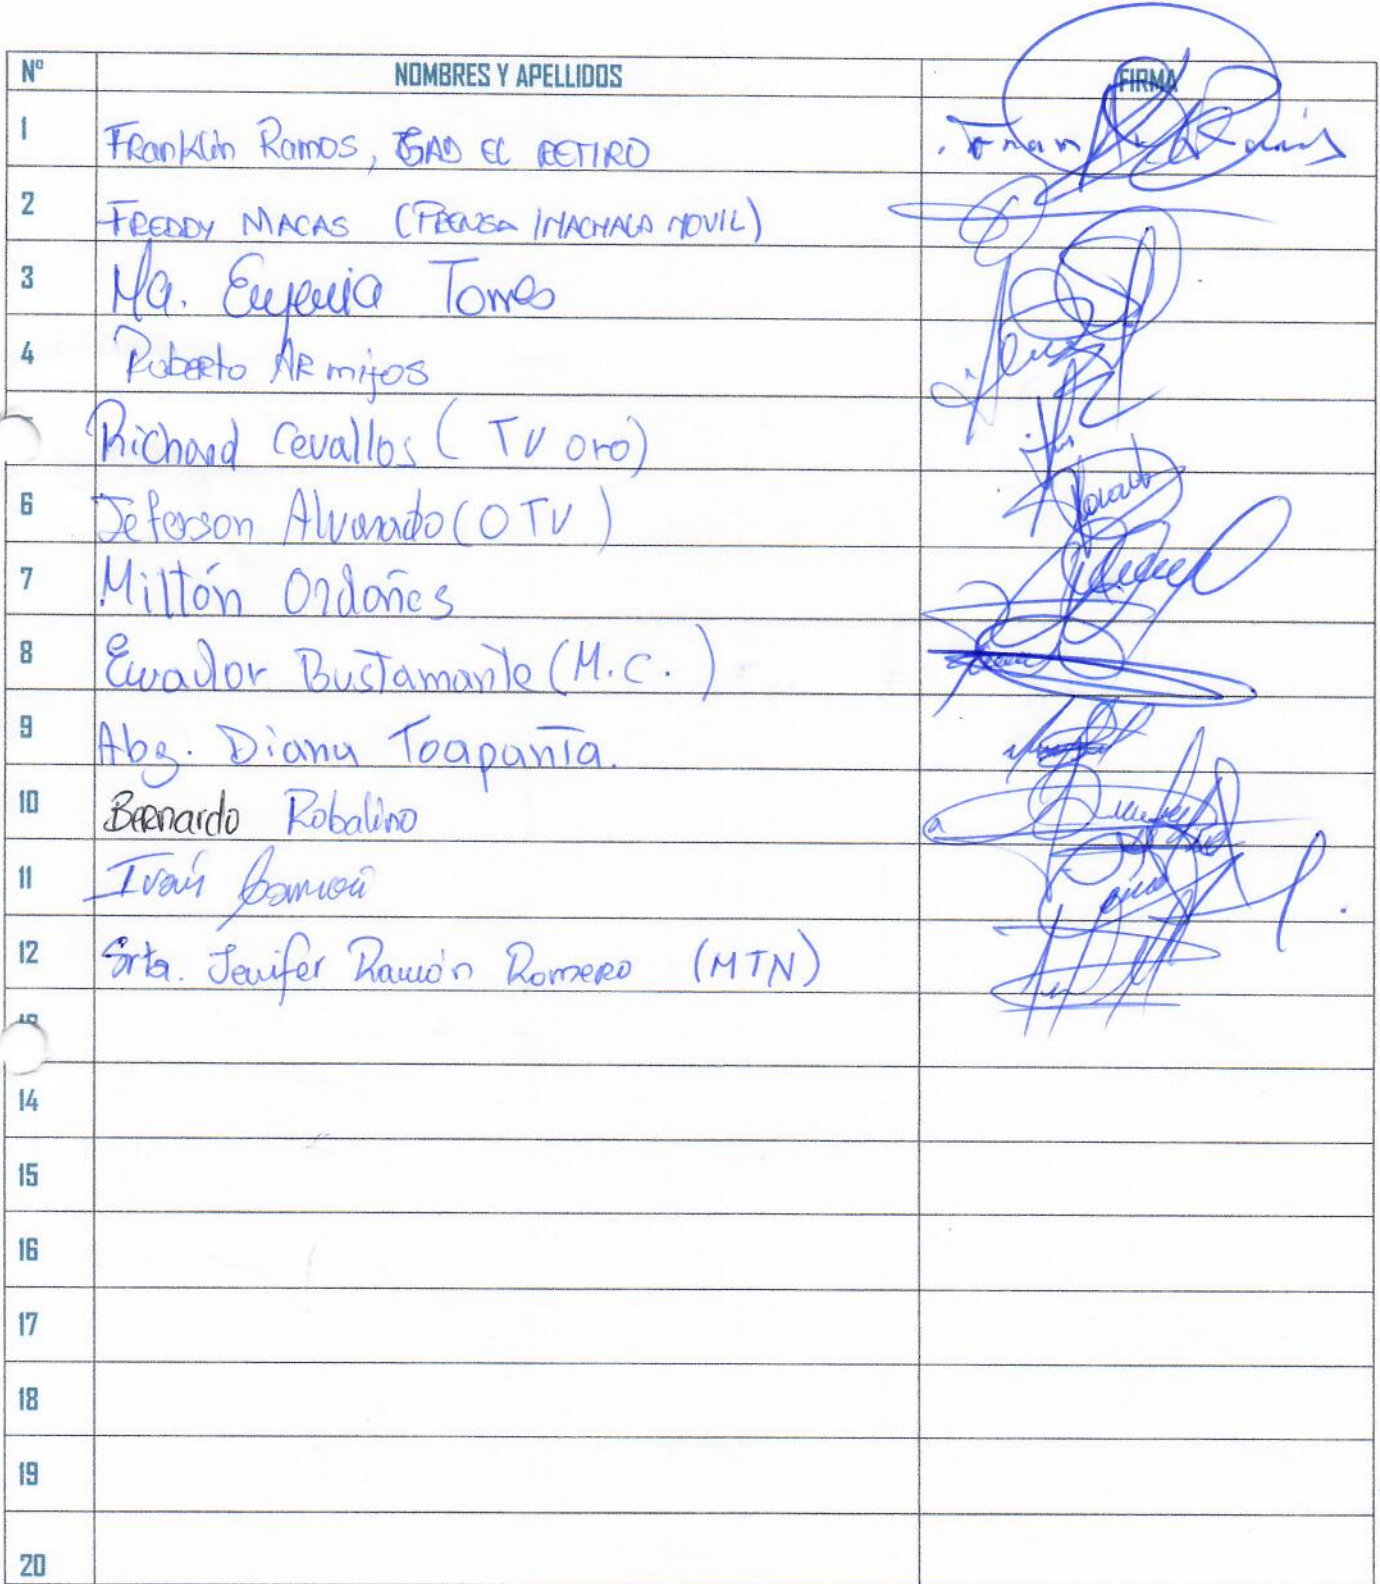 Nº NOMBRES Y APELLIDOS FIRMA
1 Franklin Ramos, GAD EL RETIRO
2 FREDDY MACAS (PRENSA MACHALA MOVIL)
3 Ma. Eugenia Torres
4 Roberto Armijos
Richard Cevallos (TV oro)
6 Jeferson Alvarado (OTV)
7 Miltón Ordoñes
8 Ecuador Bustamante (M.C.)
9 Abg. Diana Toapanta.
10 Bernardo Robalino
11 Iván
12 Srta. Jenifer Ramón Romero (MTN)
14
15
16
17
18
19
20